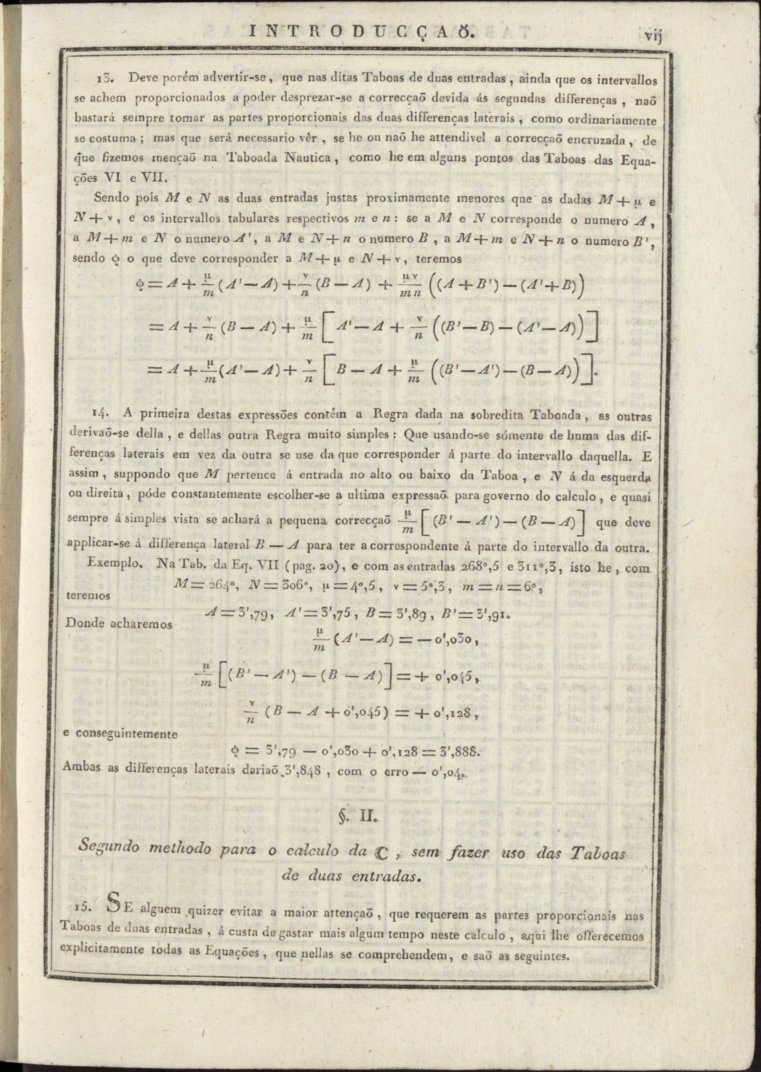 INTRODUCÇAÕ. vij
13. Deve porém advertir-se, que nas ditas Taboas de duas entradas, ainda que os intervallos
se achem proporcionados a poder desprezar-se a correcçaõ devida ás segundas differenças, naõ
bastará sempre tomar as partes proporcionais das duas differenças laterais, como ordinariamente
se costuma; mas que será necessario vêr, se he ou naõ he attendivel a correcçaõ encruzada, de
que fizemos mençaõ na Taboada Nautica, como he em alguns pontos das Taboas das Equa-
ções VI e VII.
Sendo pois M e N as duas entradas justas proximamente menores que as dadas M + μ e
N + ν, e os intervallos tabulares respectivos m e n: se a M e N corresponde o numero A,
a M + m e N o numero A', a M e N + n o numero B, a M + m e N + n o numero B',
sendo φ o que deve corresponder a M + μ e N + ν, teremos
φ = A + μ/m (A' — A) + ν/n (B — A) + μν/mn ((A + B') — (A' + B))
= A + ν/n (B — A) + μ/m [A' — A + ν/n ((B' — B) — (A' — A))]
= A + μ/m (A' — A) + ν/n [B — A + μ/m ((B' — A') — (B — A))].
14. A primeira destas expressões contém a Regra dada na sobredita Taboada, as outras
derivaõ-se della, e dellas outra Regra muito simples: Que usando-se sómente de huma das dif-
ferenças laterais em vez da outra se use da que corresponder á parte do intervallo daquella. E
assim, suppondo que M pertence á entrada no alto ou baixo da Taboa, e N á da esquerda
ou direita, póde constantemente escolher-se a ultima expressaõ para governo do calculo, e quasi
sempre á simples vista se achará a pequena correcçaõ μ/m [(B' — A') — (B — A)] que deve
applicar-se á differença lateral B — A para ter a correspondente á parte do intervallo da outra.
Exemplo. Na Tab. da Eq. VII (pag. 20), e com as entradas 268°,5 e 311°,3, isto he, com
M = 264°, N = 306°, μ = 4°,5, ν = 5°,3, m = n = 6°,
teremos
A = 3',79, A' = 3',75, B = 3',89, B' = 3',91.
Donde acharemos
μ/m (A' — A) = — 0',030,
μ/m [(B' — A') — (B — A)] = + 0',045,
ν/n (B — A + 0',045) = + 0',128,
e conseguintemente
φ = 3',79 — 0',030 + 0',128 = 3',888.
Ambas as differenças laterais dariaõ 3',848, com o erro — 0',04.
§. II.
Segundo methodo para o calculo da ☾, sem fazer uso das Taboas
de duas entradas.
15. SE alguem quizer evitar a maior attençaõ, que requerem as partes proporcionais nas
Taboas de duas entradas, á custa de gastar mais algum tempo neste calculo, aqui lhe offerecemos
explicitamente todas as Equações, que nellas se comprehendem, e saõ as seguintes.